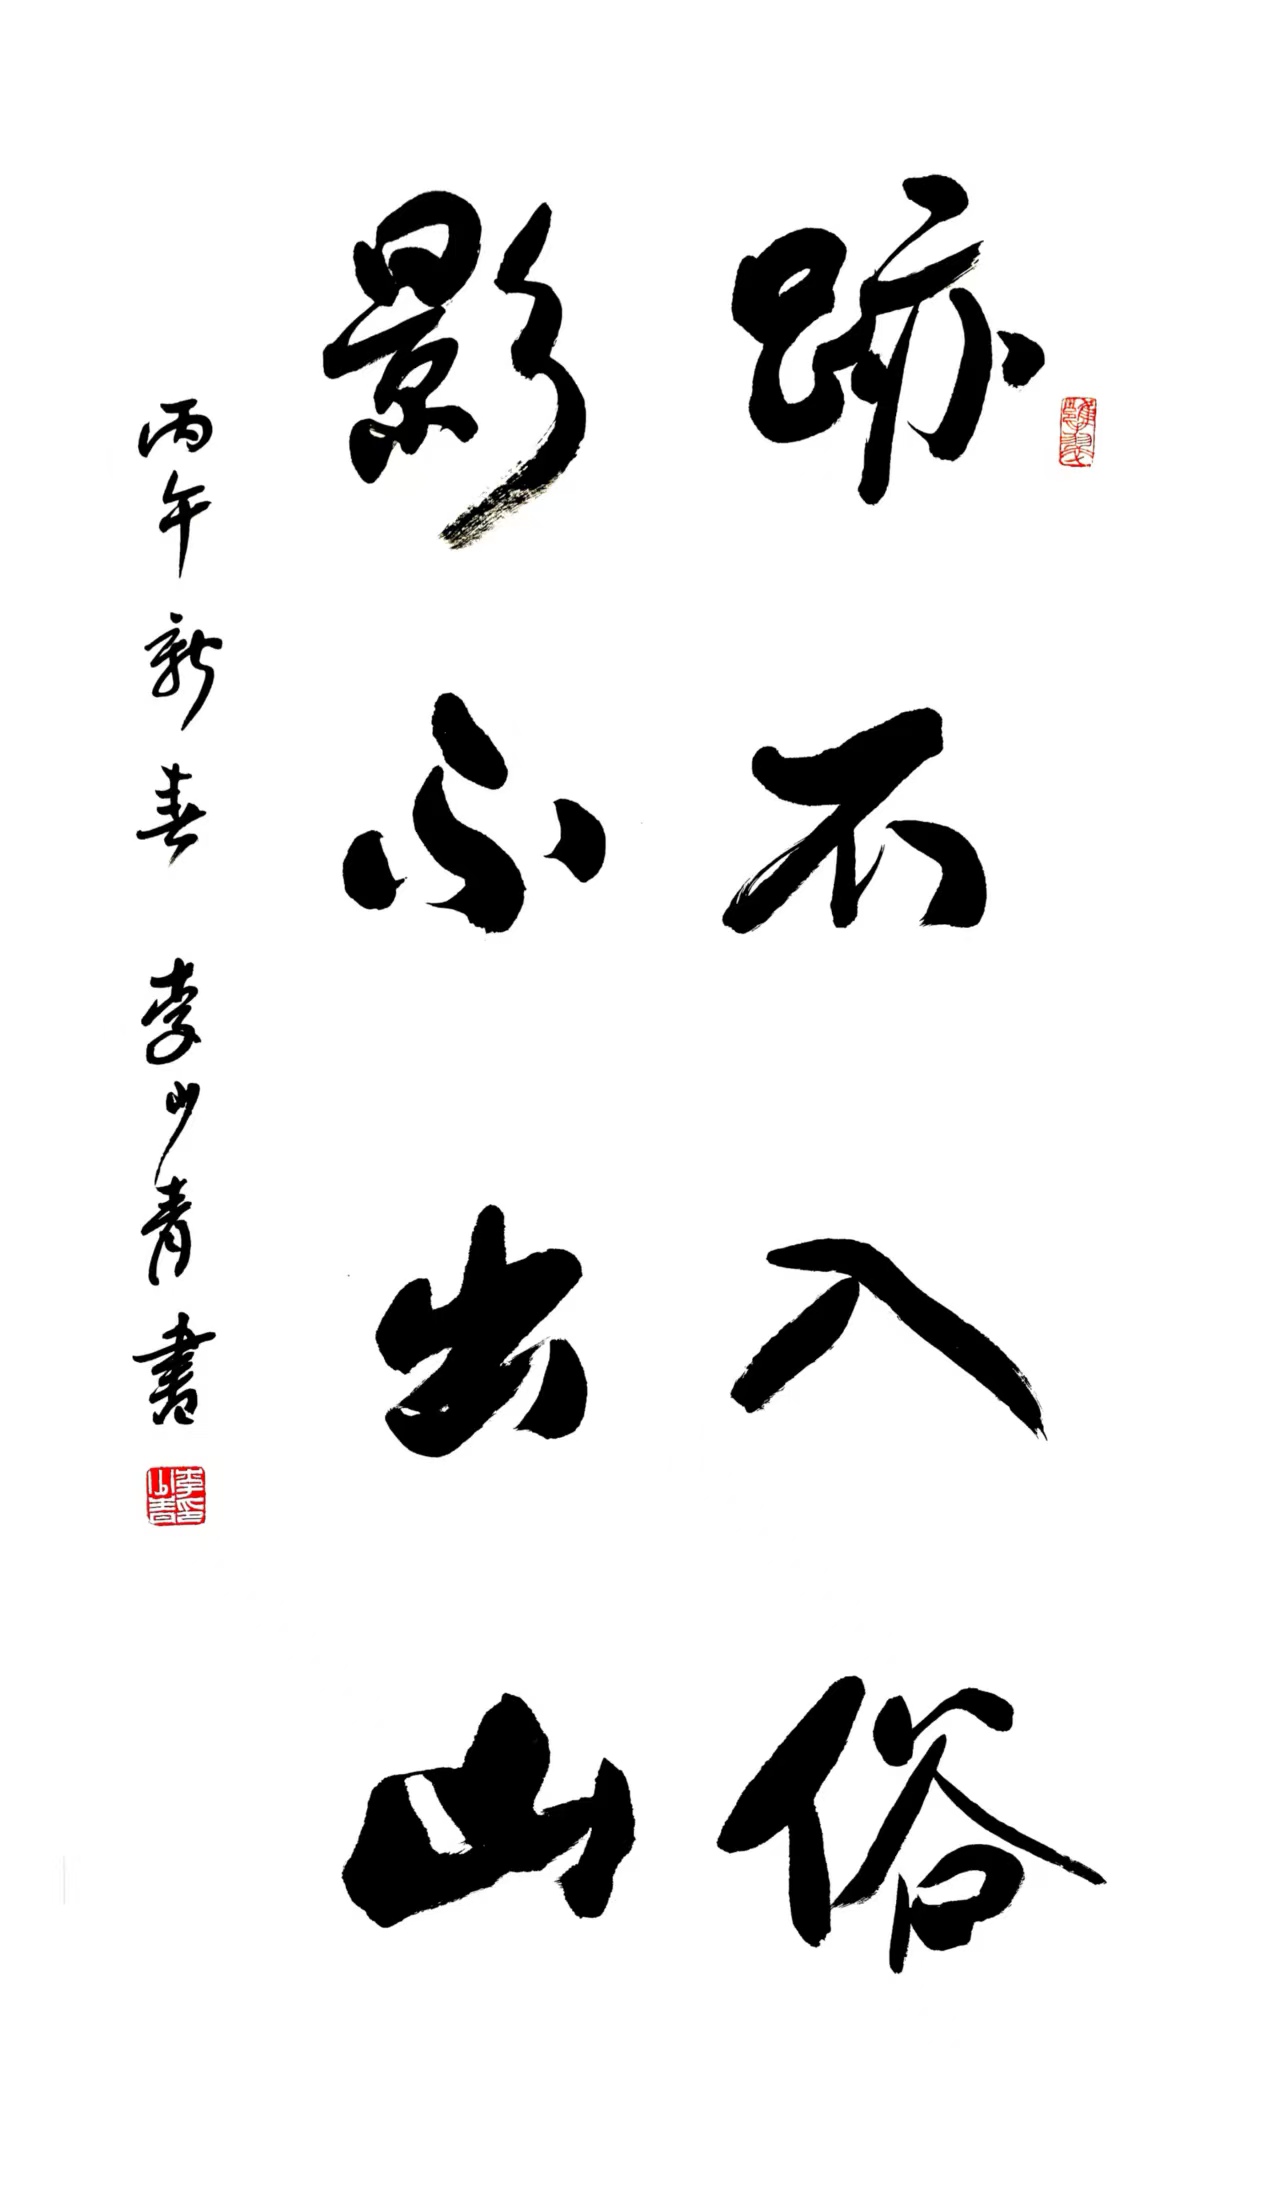 跡不入俗
影不出山
丙午新春 李少青書